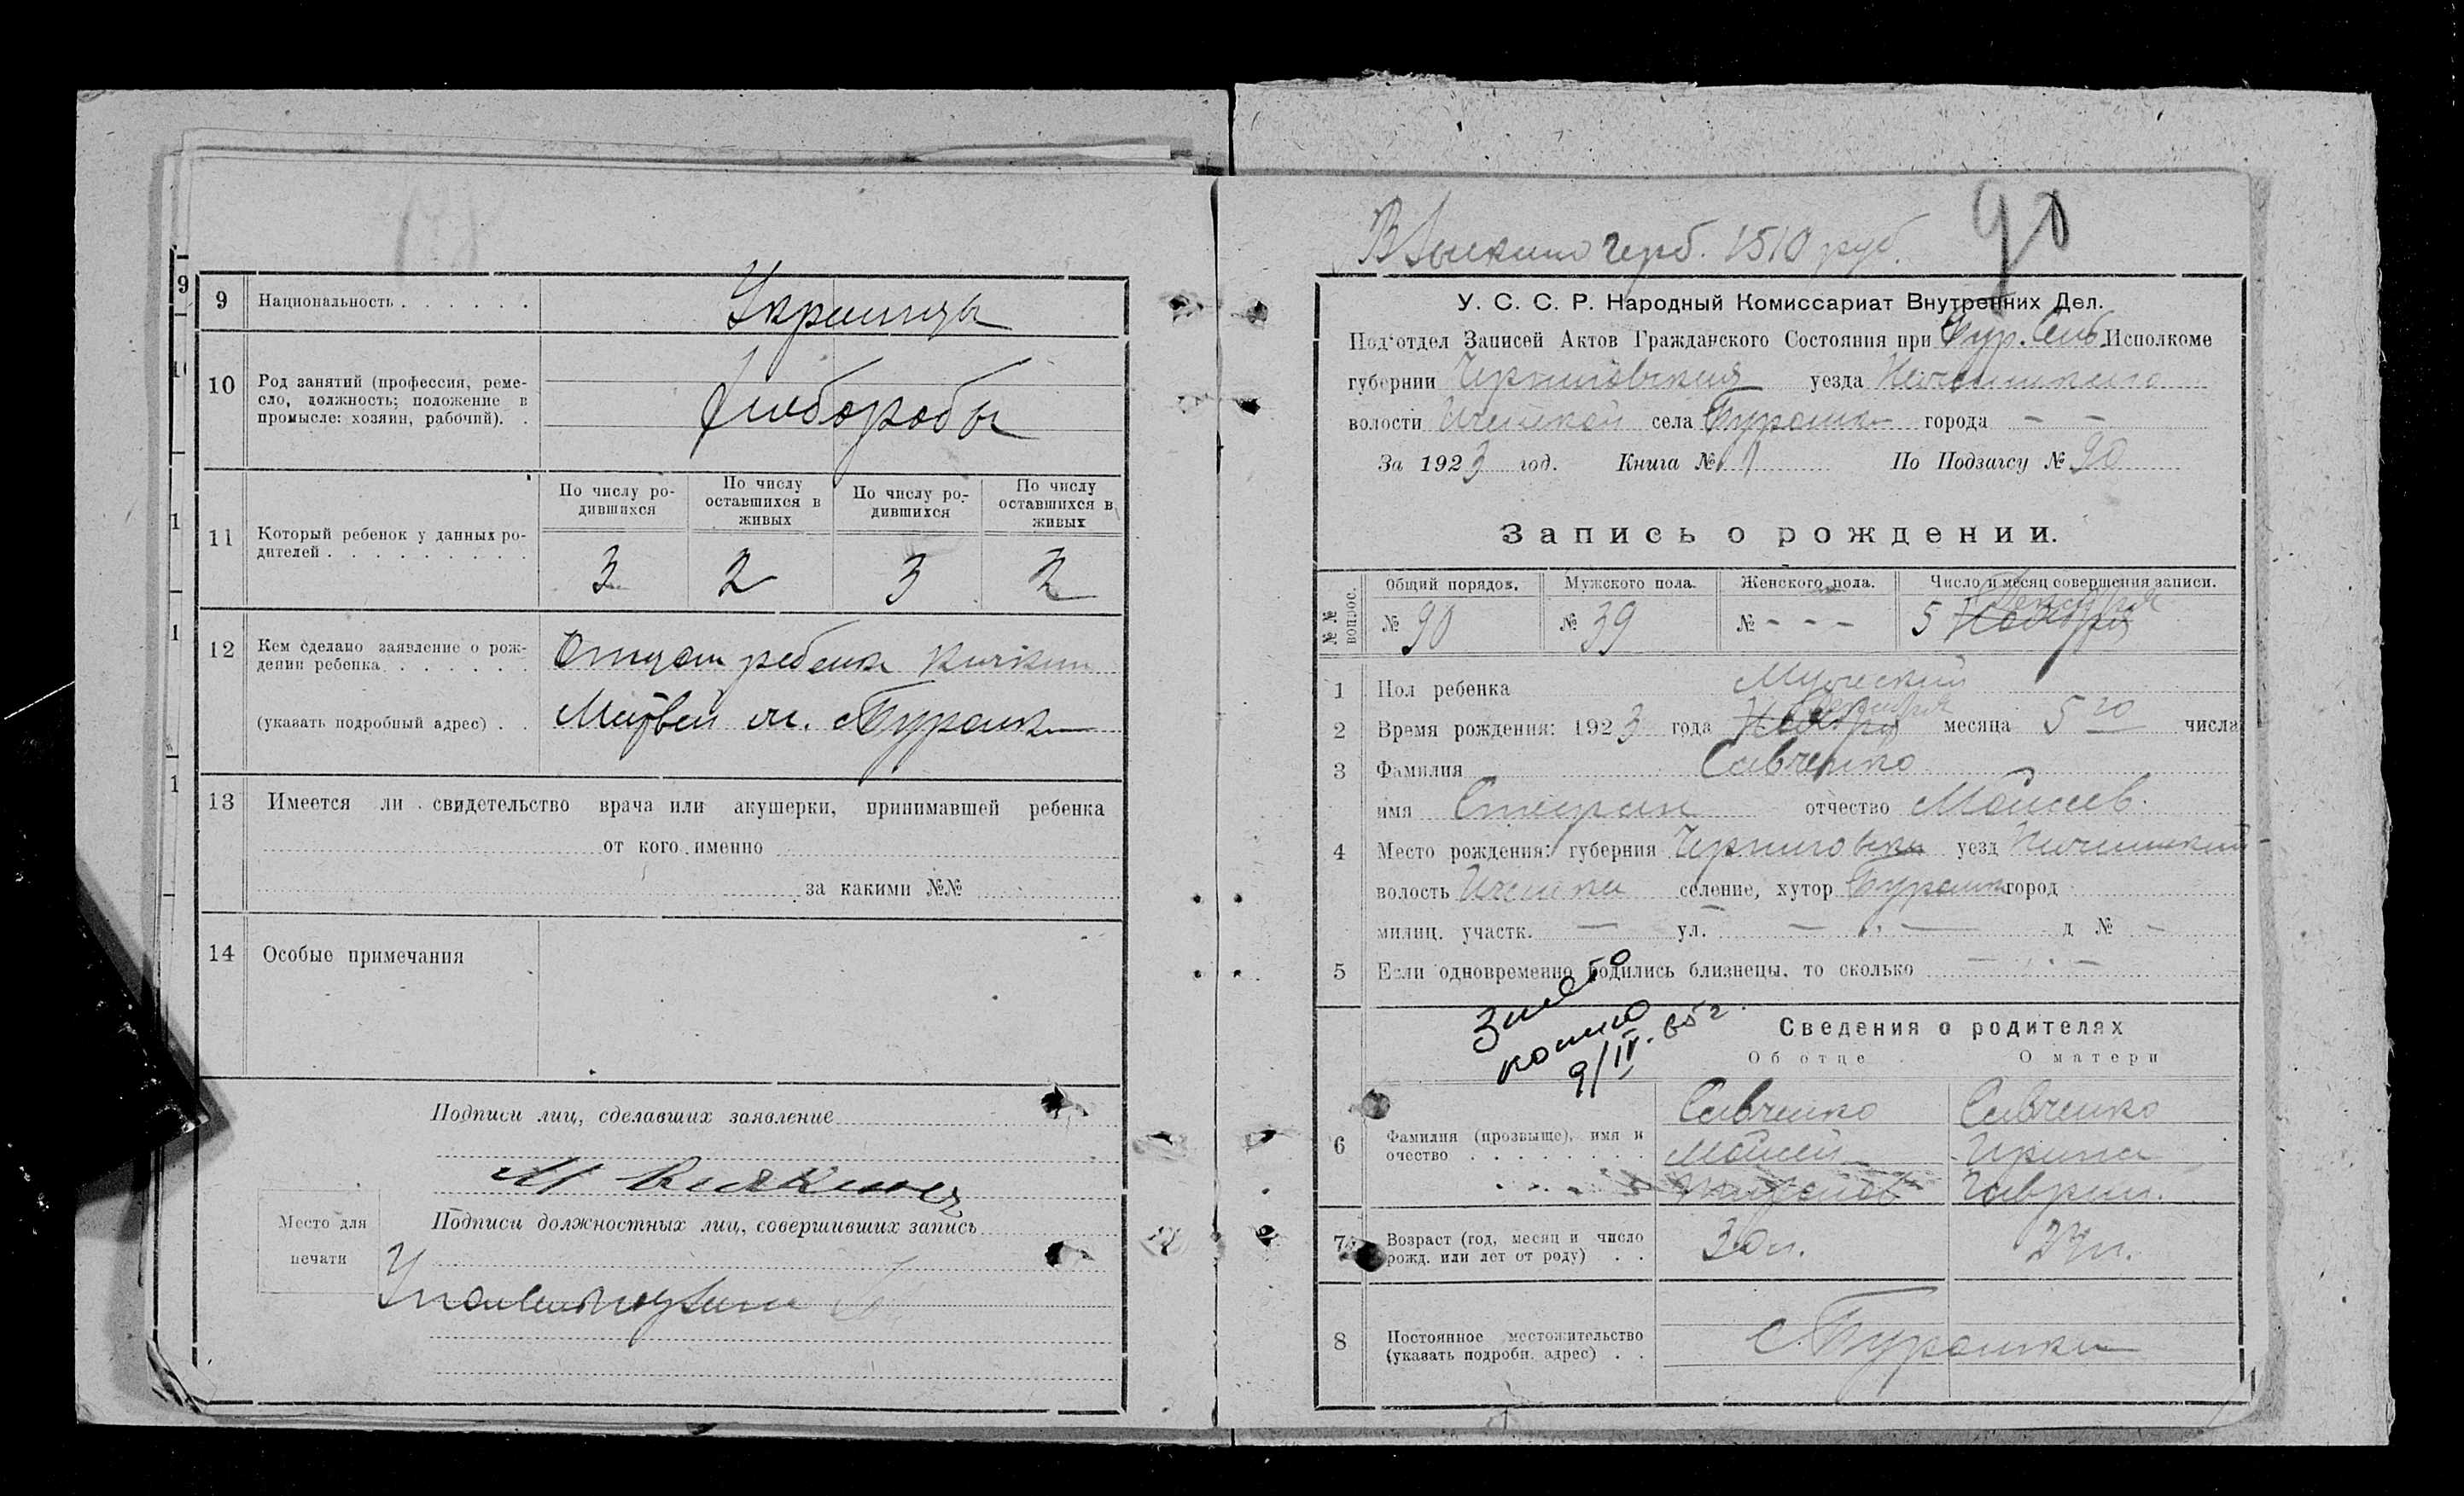 9 Национальность . . . . . . Украинцы
10 Род занятий (профессия, реме-
сло, должность; положение в
промысле: хозяин, рабочий). . Хлеборобы
11 Который ребенок у данных ро-
дителей . . . . . . . . .
По числу ро-
дившихся
По числу
оставшихся в
живых
По числу ро-
дившихся
По числу
оставшихся в
живых
3 2 3 2
12 Кем сделано заявление о рож-
дении ребенка . . . . . . Отцом ребенка
(указать подробный адрес) . . Матвей
13 Имеется ли свидетельство врача или акушерки, принимавшей ребенка
от кого именно
за какими №№
14 Особые примечания
Подписи лиц, сделавших заявление
Место для
печати
Подписи должностных лиц, совершивших запись
герб. 1510 руб. 90
У. С. С. Р. Народный Комиссариат Внутренних Дел.
Под'отдел Записей Актов Гражданского Состояния при Исполкоме
губернии Черниговския уезда
волости села города — —
За 1923 год. Книга № 1 По Подзагсу № 90
Запись о рождении.
№№ вопрос.
Общий порядок. Мужского пола. Женского пола. Число и месяц совершения записи.
№ 90 № 39 № - - - 5 Ноября
1 Пол ребенка Мужеский
2 Время рождения: 1923 года Ноября месяца 5го числа
3 Фамилия Савченко
имя Стефан отчество Моисеев.
4 Место рождения: губерния Черниговск уезд
волость селение, хутор город
милиц. участк. — ул. — — д № —
5 Если одновременно родились близнецы, то сколько — . —
Знято
копию
9/IV. 65 г.
Сведения о родителях
Об отце О матери
6 Фамилия (прозвище), имя и
очество . . . . . . . .
Савченко Савченко
Моисей Ирина
Гаврил.
7 Возраст (год, месяц и число
рожд. или лет от роду) . . 30 л. 27 л.
8 Постоянное местожительство
(указать подробн. адрес) . .